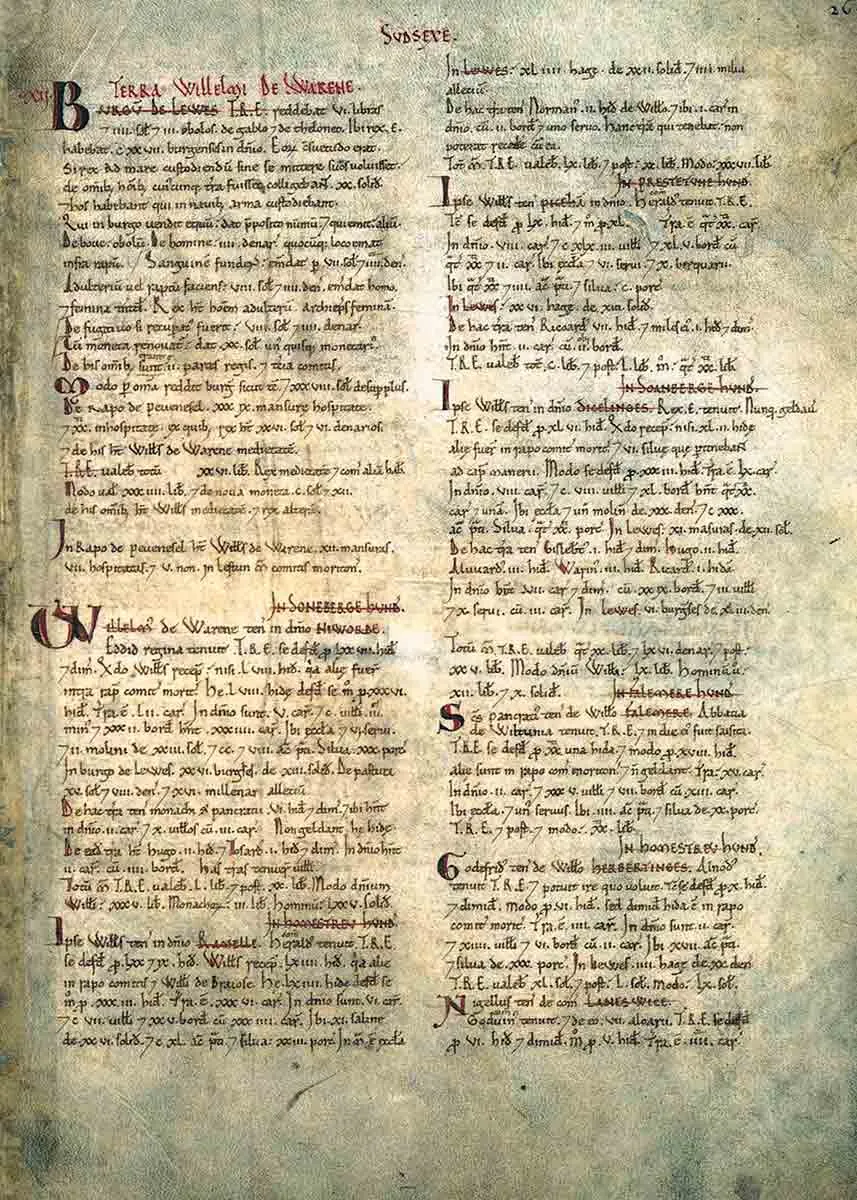 26
SUDSEXE.
XII. TERRA Willelmi De WARENE.
BURGŪ DE LEWES T.R.E. reddebat vi. libras
7 iiii. sol 7 iii. obolos. de gablo 7 de theloneo. Ibi rex. E.
habebat. c.xxvii. burgenses in dn̄io. Eoꝝ c̄suetudo erat.
Si rex ad mare custodiendū sine se mittere suos voluisset.
de om̄ib hōib cuiꝰcunq; tr̄a fuisset colligebant. xx. solid.
7 hos habebant qui in nauib arma custodiebant.
Qui in burgo vendit equū: dat p̄posito nūmū. 7 qui emit. aliū.
De boue: obolū. De homine. iiii. denar. quocūq; loco emat
infra rapū. Sanguinē fundens em̄dat p vii. sol 7 iiii. den.
Adulteriū uel raptū faciens: viii. sol 7 iiii. den em̄dat homo.
7 femina tn̄td. Rex ht̄ hōem adulterū. Archiep̄s feminā.
De fugitiuo si recupatꝰ fuerit: viii. sol 7 iiii. denar.
Cū moneta renouatꝰ: dat. xx. sol unꝰ quisq; monetariꝰ.
De his om̄ib sunt. ii. partes regis. 7 tcia comitis.
Modo p om̄a reddet burgꝰ sicut tc̄. 7 xxxviii. sol de suplus.
De Rapo de peuenesel. xxxix. mansure hospitate.
7 xx. inhospitate. ex quib rex ht̄ xxvi. sol 7 vi. denarios.
7 de his ht̄ Willꝰs de Warene medietatē.
T.R.E. valeb totū xxvi. lib. Rex medietatē 7 com aliā habb
Modo ual xxxiiii. lib. 7 de noua moneta. c. sol 7 xii.
de his om̄ib ht̄ Willꝰs medietatē. 7 rex alterā.
In Rapo de peuenesel ht̄ Willꝰs de Warene. xii. mansuras.
vii. hospitatas. 7 v. non. in lestun m̄ comitis moriton.
IN SONEBERGE HUND.
Willelmꝰ de Warene ten in dn̄io NIWORDE.
Eddid regina tenuit. T.R.E. se defd p lxxvii. hid
7 dim̄. Qdo Willꝰs recep: nisi. lviii. hid. q̄a alię fuer
intra rap comit morit. He. lviii. hidę defd se m̄ p xxxvi.
hid. Tr̄a. ē. lii. car. In dn̄io sunt. v. car. 7 c. uilli. iii.
minꝰ 7 xxxii. bord hn̄t. xxxiiii. car. Ibi ęccla 7 vi serui.
7 ii. molini de xxiii. sol. 7 cc. 7 viii. ac p̄ti. Silua. xxx porc
In burgo de Lewes. xxvi. burgs̄es. de xiii. solid. De pastura
xv. sol 7 viii. den 7 xvi. millenar allecium
De hac tr̄a ten monachi S pancratii. vi. hid 7 dim̄. 7 ibi hn̄t
in dn̄io. ii. car. 7 x. uillos cū. iii. car. Non geldant hę hidę.
De ead tr̄a ht̄ hugo. ii. hid. 7 Tosard. i. hid 7 dim̄. In dn̄io hn̄t
ii. car. cū. iiii. bord. Has tr̄as tenuer uilli.
Totū m̄. T.R.E. valeb. l. lib. 7 post. xx. lib. Modo dn̄ium
Willi: xxxv. lib. Monachoꝝ: iii. lib. Hominū: lxxv. solid.
IN HOMESTREU HUND.
Ipse Willꝰs ten in dn̄io RAMELLE. Herald com tenuit. T.R.E.
se defd p lxx 7 ix. hid. Willꝰs recep. lxiiii. hid. q̄a alię
in rapo comitis 7 Willi de Braiose. He. lxiiii. hidę defd se
m̄ p. xxxiii. hid. Tr̄a. ē. xxxvi. car. In dn̄io sunt. v. car
7 c. vii. uilli 7 xxv. bord cū xxxiiii. car. Ibi. xi. salinę
de xxvi. solid. 7 c. xl. ac p̄ti. 7 silua: xxiii. porc. In m̄ ē ęccla
In Lewes: xliiii. hagę. de xxii. solid. 7 iiii. milia
alleciū.
De hac tr̄a ten Norman. ii. hid de Willo. 7 ibi. i. car in
dn̄io. cū. ii. bord 7 uno seruo. Hanc tr̄ā qui tenebat: non
poterat recede cū ea.
Tot m̄. T.R.E. valeb. lx. lib. 7 post: xl. lib. Modo: xxxvii. lib.
IN PRESTETUNE HUND.
Ipse Willꝰs ten PICEHĀ in dn̄io. Herald tenuit. T.R.E.
Tc̄ se defd p lxxx. hid. 7 m̄ p. xl. Tr̄a. ē. qt xx. car.
In dn̄io. viii. car. 7 c. lxiii. uilli 7 xlv. bord cū
qt xx. 7 ii. car. Ibi ęccla 7 vi. serui. 7 x. berquarii.
Ibi qt xx 7 iiii. ac p̄ti. 7 silua: c. porc
In Lewes: xxvi. hagę. de. xiii. solid.
De hac tr̄a ten Ricoard. vii. hid. 7 miles eiꝰ. i. hid 7 dim̄.
In dn̄io hn̄t. ii. car cū. ii. bord.
T.R.E. valeb tot. c. lib. 7 post. l. lib. m̄. qt xx. lib.
IN SOANEBERGE HUND.
Ipse Willꝰs ten in dn̄io DICELINGES. Rex. E. tenuit. Nunq geldau
T.R.E. se defd p xlvi. hid. Qdo recep. nisi. xlii. hidę
alię fuer in rapo comit morit. 7 vi. siluę quę ptinebant
ad cap manerii. Modo se defd p xxxiii. hid. Tr̄a. ē. lx. car.
In dn̄io. viii. car. 7 c. viii. uilli 7 xl. bord hn̄t qt xx.
car 7 unā. Ibi ęccla 7 un molin de. xxx. den. 7 c. xxx.
ac p̄ti. Silua. qt xx. porc. In Lewes. xi. masuras. de. xii. sol.
De hac tr̄a ten Gislebt. i. hid 7 dim̄. Hugo. ii. hid.
Aluuard. iii. hid. Warin. iii. hid. Ricard. i. hidā.
In dn̄io hn̄t. vii. car 7 dim̄. cū. xxix. bord. 7 iii. uilli
7 x. serui. cū. iii. car. In Lewes. vi. burgs̄es de. xliii. den.
Totū m̄. T.R.E. valeb qt xx. lib. 7 lxvi. denar. 7 post:
xxv. lib. Modo dn̄iū Willi: lx. lib. Hominū. uꝰ:
xii. lib. 7 x. solid. IN FALEMERE HUND
Scs̄ pancratiꝰ ten de Willo FALEMERE. Abbatia
de Wiltunia tenuit. T.R.E. 7 in die ei fuit saisita.
T.R.E. se defd p xx una hida. 7 modo p xviii. hid.
alię sunt in rapo com moriton. 7 n̄ geldant. Tr̄a: xv. car.
In dn̄io. ii. car. 7 xxxv. uilli 7 vii. bord cū xiii. car.
Ibi ęccla. 7 un seruus. Ibi. iiii. ac p̄ti. 7 silua de. xx. porc.
T.R.E. 7 post. 7 modo: xx. lib.
IN HOMESTREU HUND.
Godefrid ten de Willo HERBERTINGES. Alnod
tenuit T.R.E. 7 potuit ire quo uoluit. Tc̄ se defd p x. hid.
7 dimid. Modo. p vi. hid. sed dimid hida ē in rapo
comit morit. Tr̄a. ē. iiii. car. In dn̄io sunt. ii. car.
7 xiiii. uilli 7 vi. bord cū. ii. car. Ibi xvii. ac p̄ti.
7 silua de. xxx. porc. In Lewes. iiii. hagę de. xx den
T.R.E. valeb xl. sol. 7 post: l. sol. Modo: lx. sol.
Nigellus ten de com LANESWICE.
Goduin tenuit. 7 de eo. vii. aloarii. T.R.E. se defd
p vi. hid 7 dimid. m̄. p. v. hid. Tr̄a. ē. iiii. car